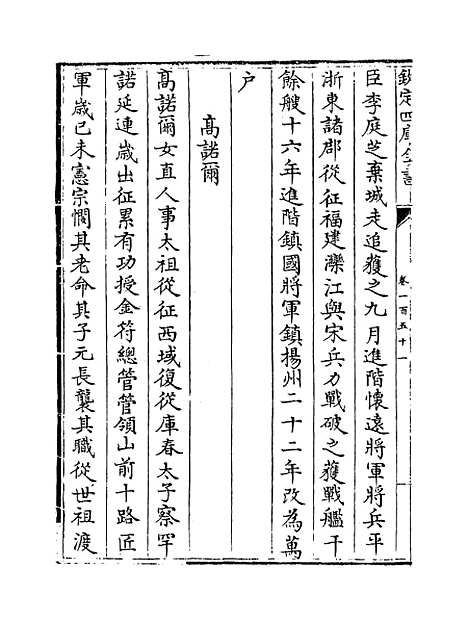 欽定四庫全書
卷一百五十一
臣李庭芝棄城走追獲之九月進階懷遠將軍將兵平
浙東諸郡從征福建灤江與宋兵力戰破之獲戰艦千
餘艘十六年進階鎮國將軍鎮揚州二十二年改為萬
户
高諾爾
高諾爾女直人事太祖從征西域復從庫春太子察罕
諾延連歲出征累有功授金符總管管領山前十路匠
軍歲己未憲宗憫其老命其子元長襲其職從世祖渡